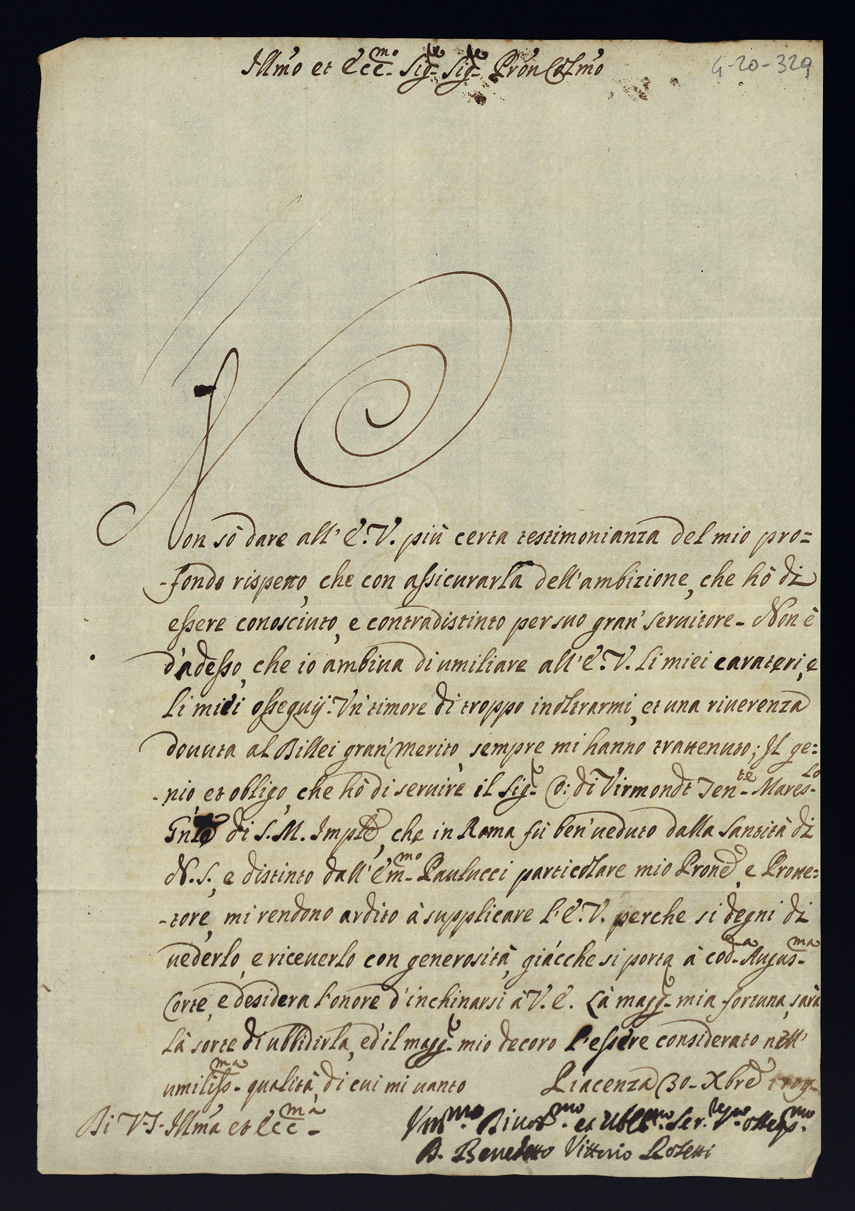 Illm̃o et Ecc.mo Sig.re Sig.re Prõn Colm̃o
G-20-329
Non sò dare all' E.V. più certa testimonianza del mio pro=
-fondo rispetto, che con assicurarla dell'ambizione, che hò di
essere conosciuto, e contradistinto per suo gran' seruitore- Non è
d'adesso, che io ambiua di umiliare all' E.V. li miei carateri, e
li miei ossequij. Vn' timore di troppo inoltrarmi, et una riuerenza
douuta al di lei gran' merito, sempre mi hanno trattenuto; Il ge=
-nio, et obligo, che hò di seruire il Sig.r C: di Virmondt Ten.te Mares.lo
Gnlẽ di S.M. Implẽ, che in Roma fù ben' ueduto dalla Santità di
N.S., e distinto dall' Em.mo Paulucci particolare mio Pronẽ, e Prote=
-tore, mi rendono ardito à supplicare l'E.V. perche si degni di
uederlo, e riceuerlo con generosità, giàcche si porta à cod.a Augus.ma
Corte, e desidera l'onore d'inchinarsi à V.E. Là magg.r mia fortuna, sarà
là sorte di ubbidirla, ed' il magg.r mio decoro l'essere considerato nell'
umiliss.ma qualità, di cui mi uanto Piacenza 30- Xbrẽ
Di V.S. Illm̃a et Ecc.ma
Vm.mo Diuot.mo et Obl.mo Ser.re osseq.mo
D. Benedetto Vittorio Rosetti